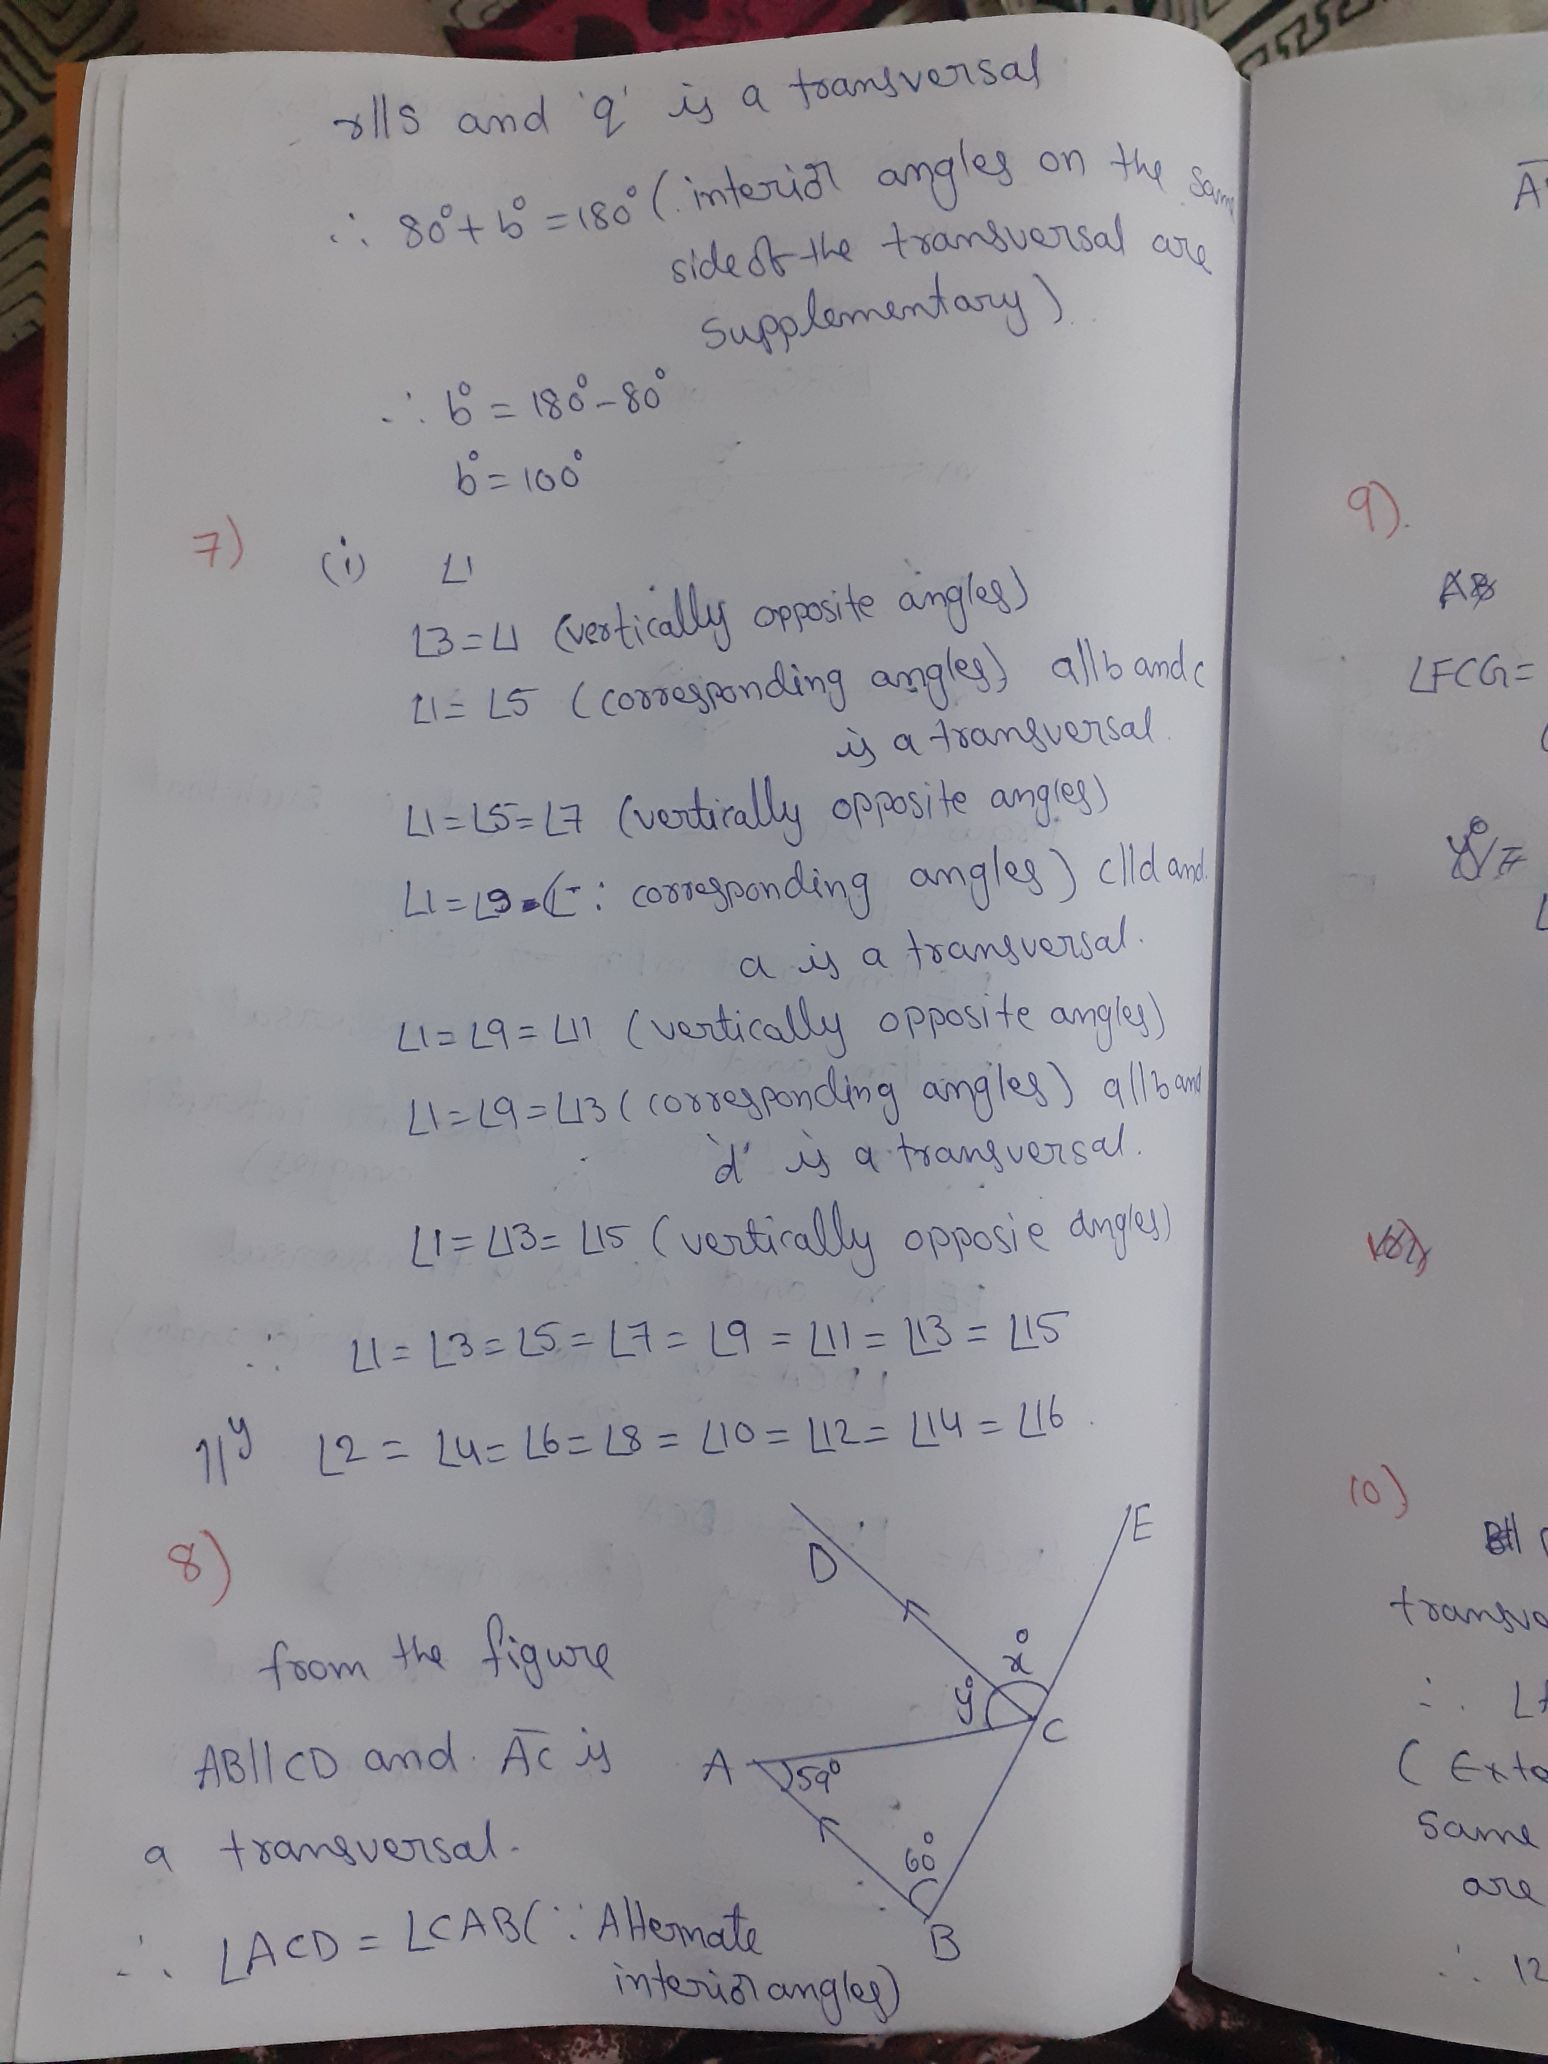 r||s and 'q' is a transversal
∴ 80°+b° = 180° (interior angles on the same
side of the transversal are
supplementary)
∴ b° = 180°-80°
b° = 100°
7) (i) ∠1
∠3=∠1 (vertically opposite angles)
∠1=∠5 (corresponding angles) a||b and c
is a transversal.
∠1=∠5=∠7 (vertically opposite angles)
∠1=∠9 (∵ corresponding angles) c||d and
a is a transversal.
∠1=∠9=∠11 (vertically opposite angles)
∠1=∠9=∠13 (corresponding angles) a||b and
'd' is a transversal.
∠1=∠13=∠15 (vertically opposie angles)
∴ ∠1=∠3=∠5=∠7=∠9=∠11=∠13=∠15
11ly ∠2=∠4=∠6=∠8=∠10=∠12=∠14=∠16.
8)
D
E
x°
y°
C
A
59°
60°
B
from the figure
AB||CD and AC is
a transversal.
∴ ∠ACD = ∠CAB (∵ Alternate
interior angles)
9).
∠FCG=
10)
( Exte
same
are
∴ 12